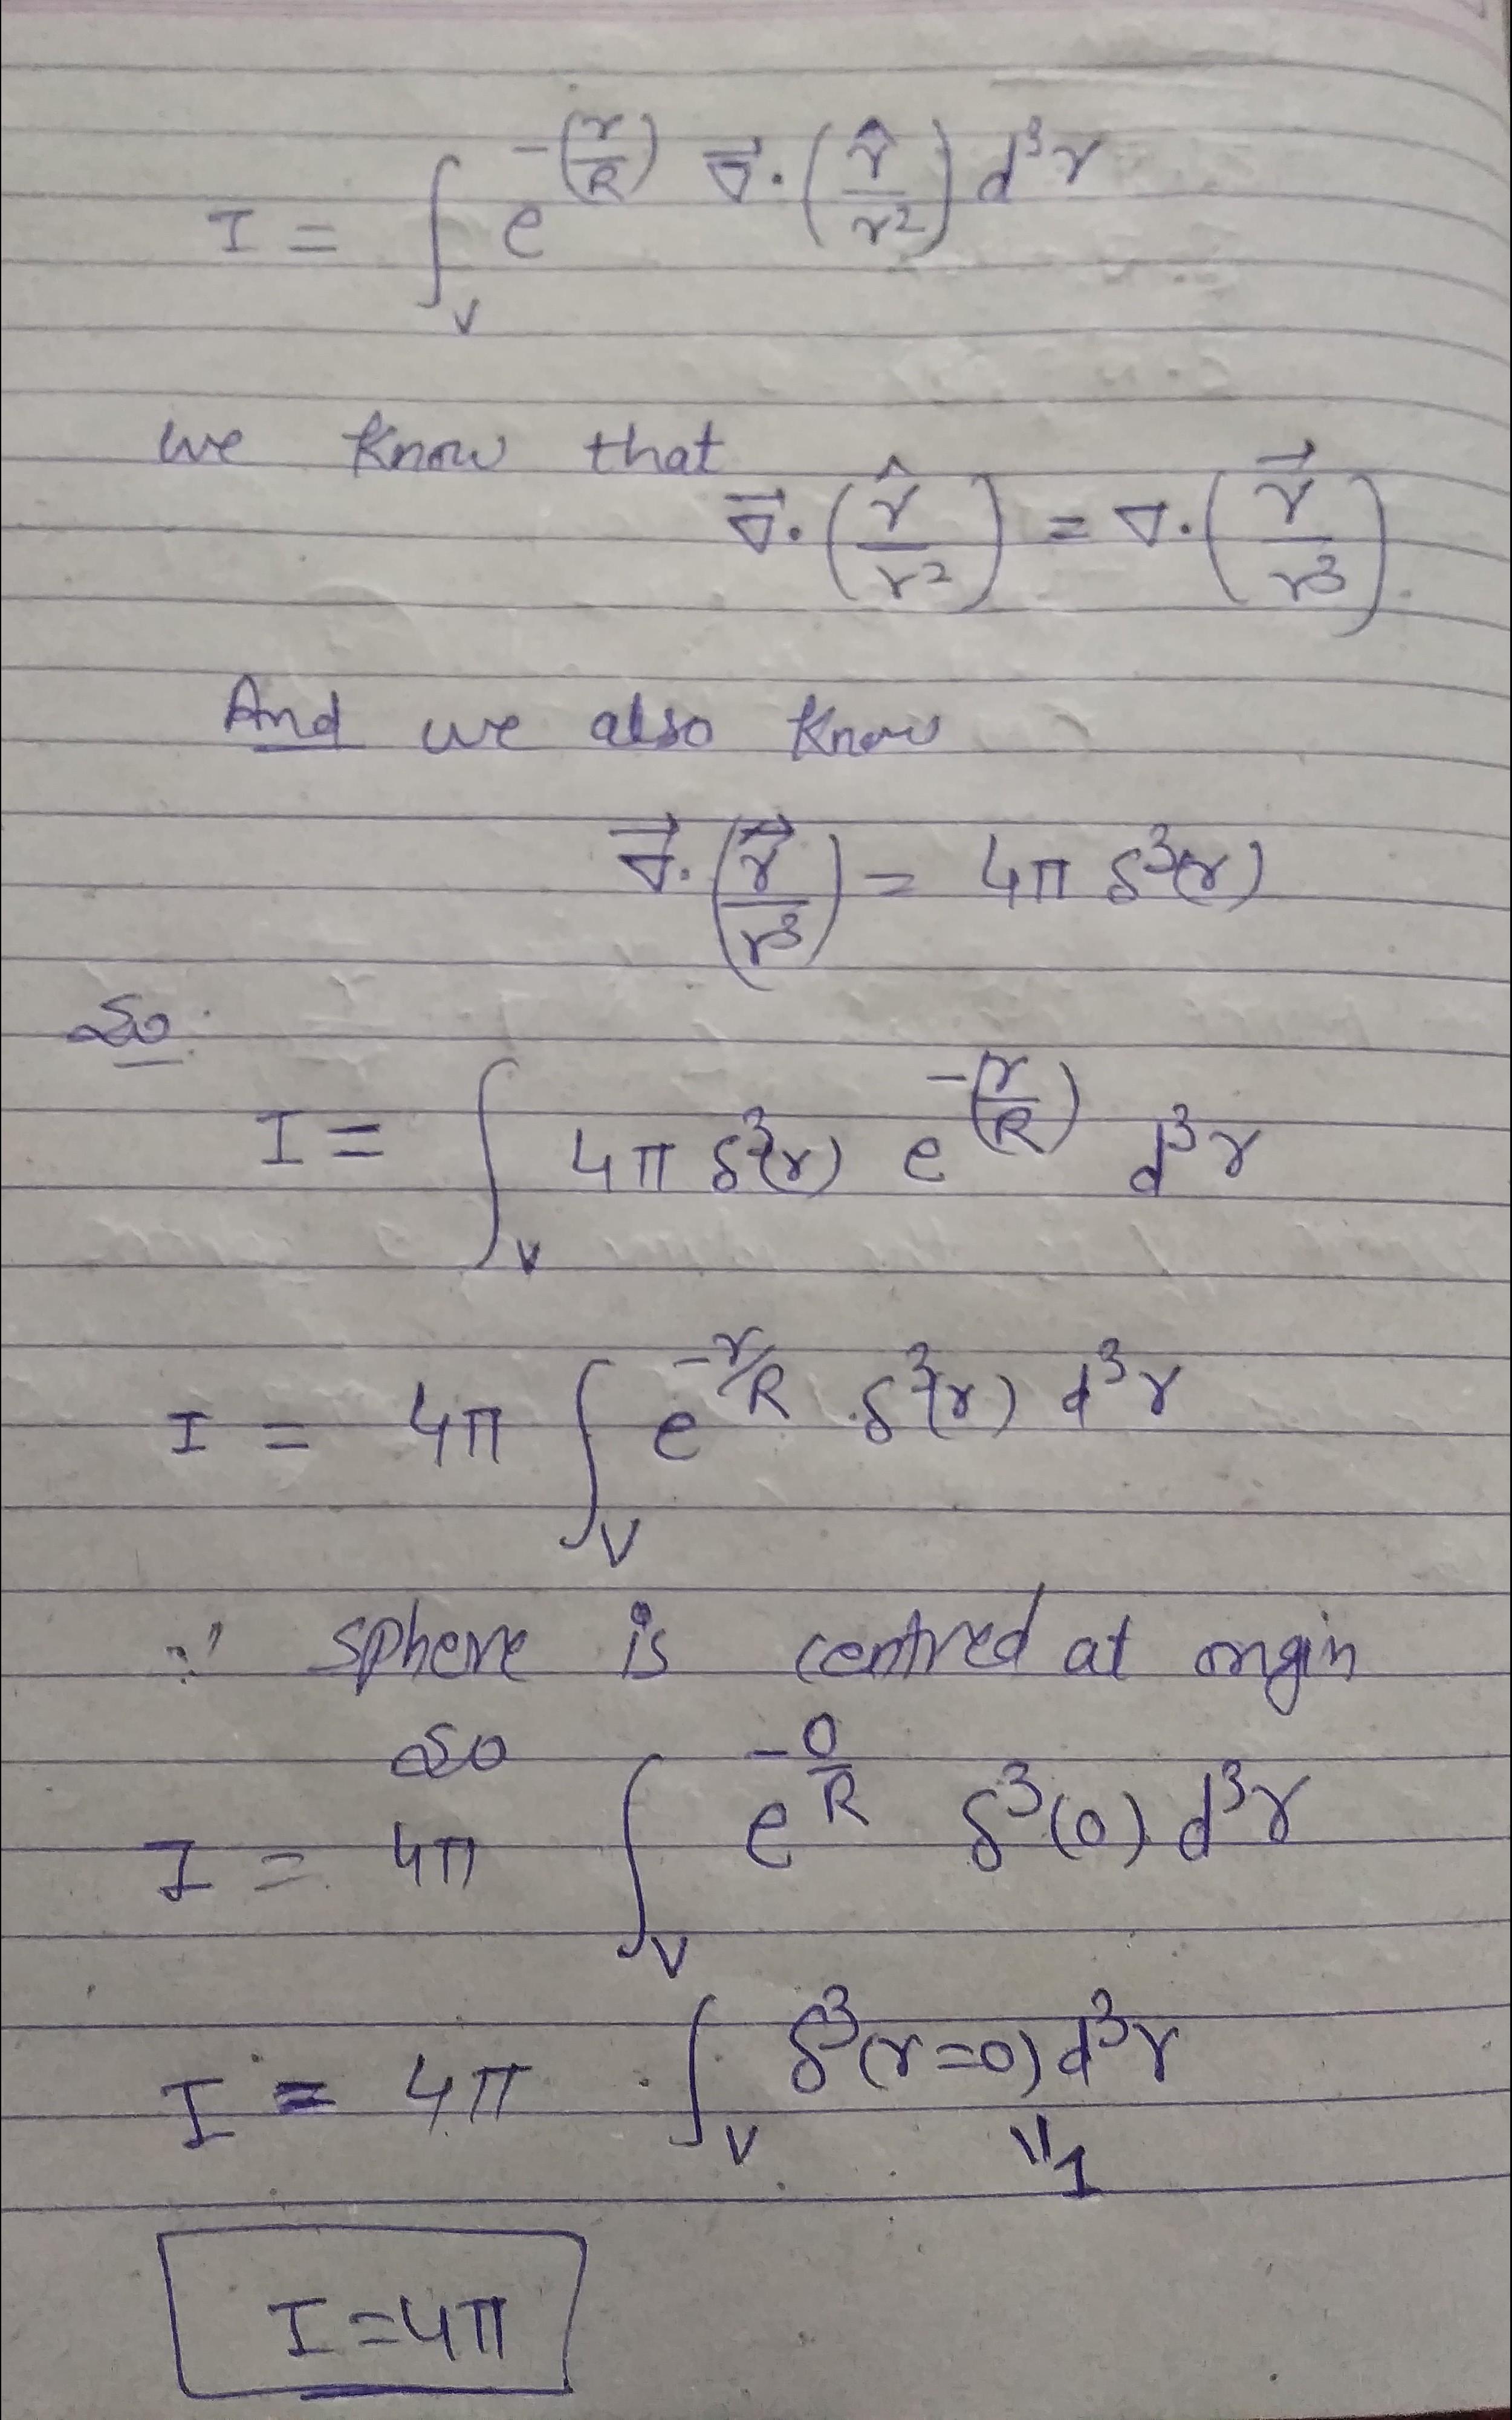 I = ∫_V e^{-(r/R)} ∇⃗.(r̂/r²) d³r
we know that
∇⃗.(r̂/r²) = ∇.(r⃗/r³)
And we also know
∇⃗.(r⃗/r³) = 4π δ³(r)
So
I = ∫_V 4π δ³(r) e^{-(r/R)} d³r
I = 4π ∫_V e^{-r/R} δ³(r) d³r
∵ sphere is centred at origin
so
I = 4π ∫_V e^{-0/R} δ³(0) d³r
I = 4π ∫_V δ³(r=0) d³r
॥1
I = 4π